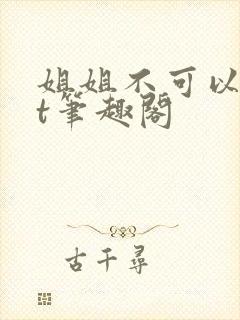 姐姐不可以
t笔趣阁
古千寻